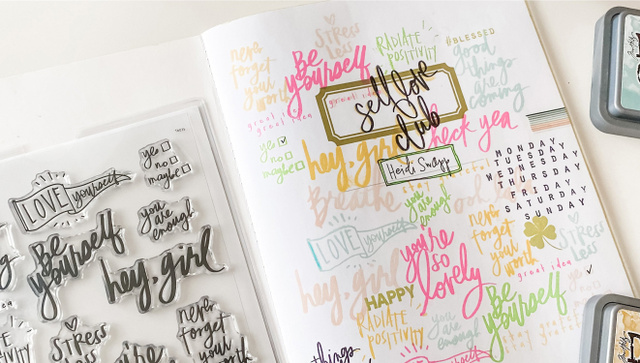 yes
no
maybe
LOVE yourself
you are
enough
Be
yourself
hey, girl
never
forget
your
worth
Stress
Less
never
forget
your
worth
Stress
Less
Be
yourself
RADIATE
POSITIVITY
#BLESSED
good
things
are
coming
great idea
great idea
self love
club
heck yea
yes
no
maybe
hey, girl
Heidi Swapp
MONDAY
TUESDAY
WEDNESDAY
THURSDAY
FRIDAY
SATURDAY
SUNDAY
Breathe
you are
enough
LOVE yourself
never
forget
your
worth
Stress
Less
you're
so
lovely
great idea
hey, girl
HAPPY
RADIATE
POSITIVITY
you are
enough
Be
yourself
yes
things